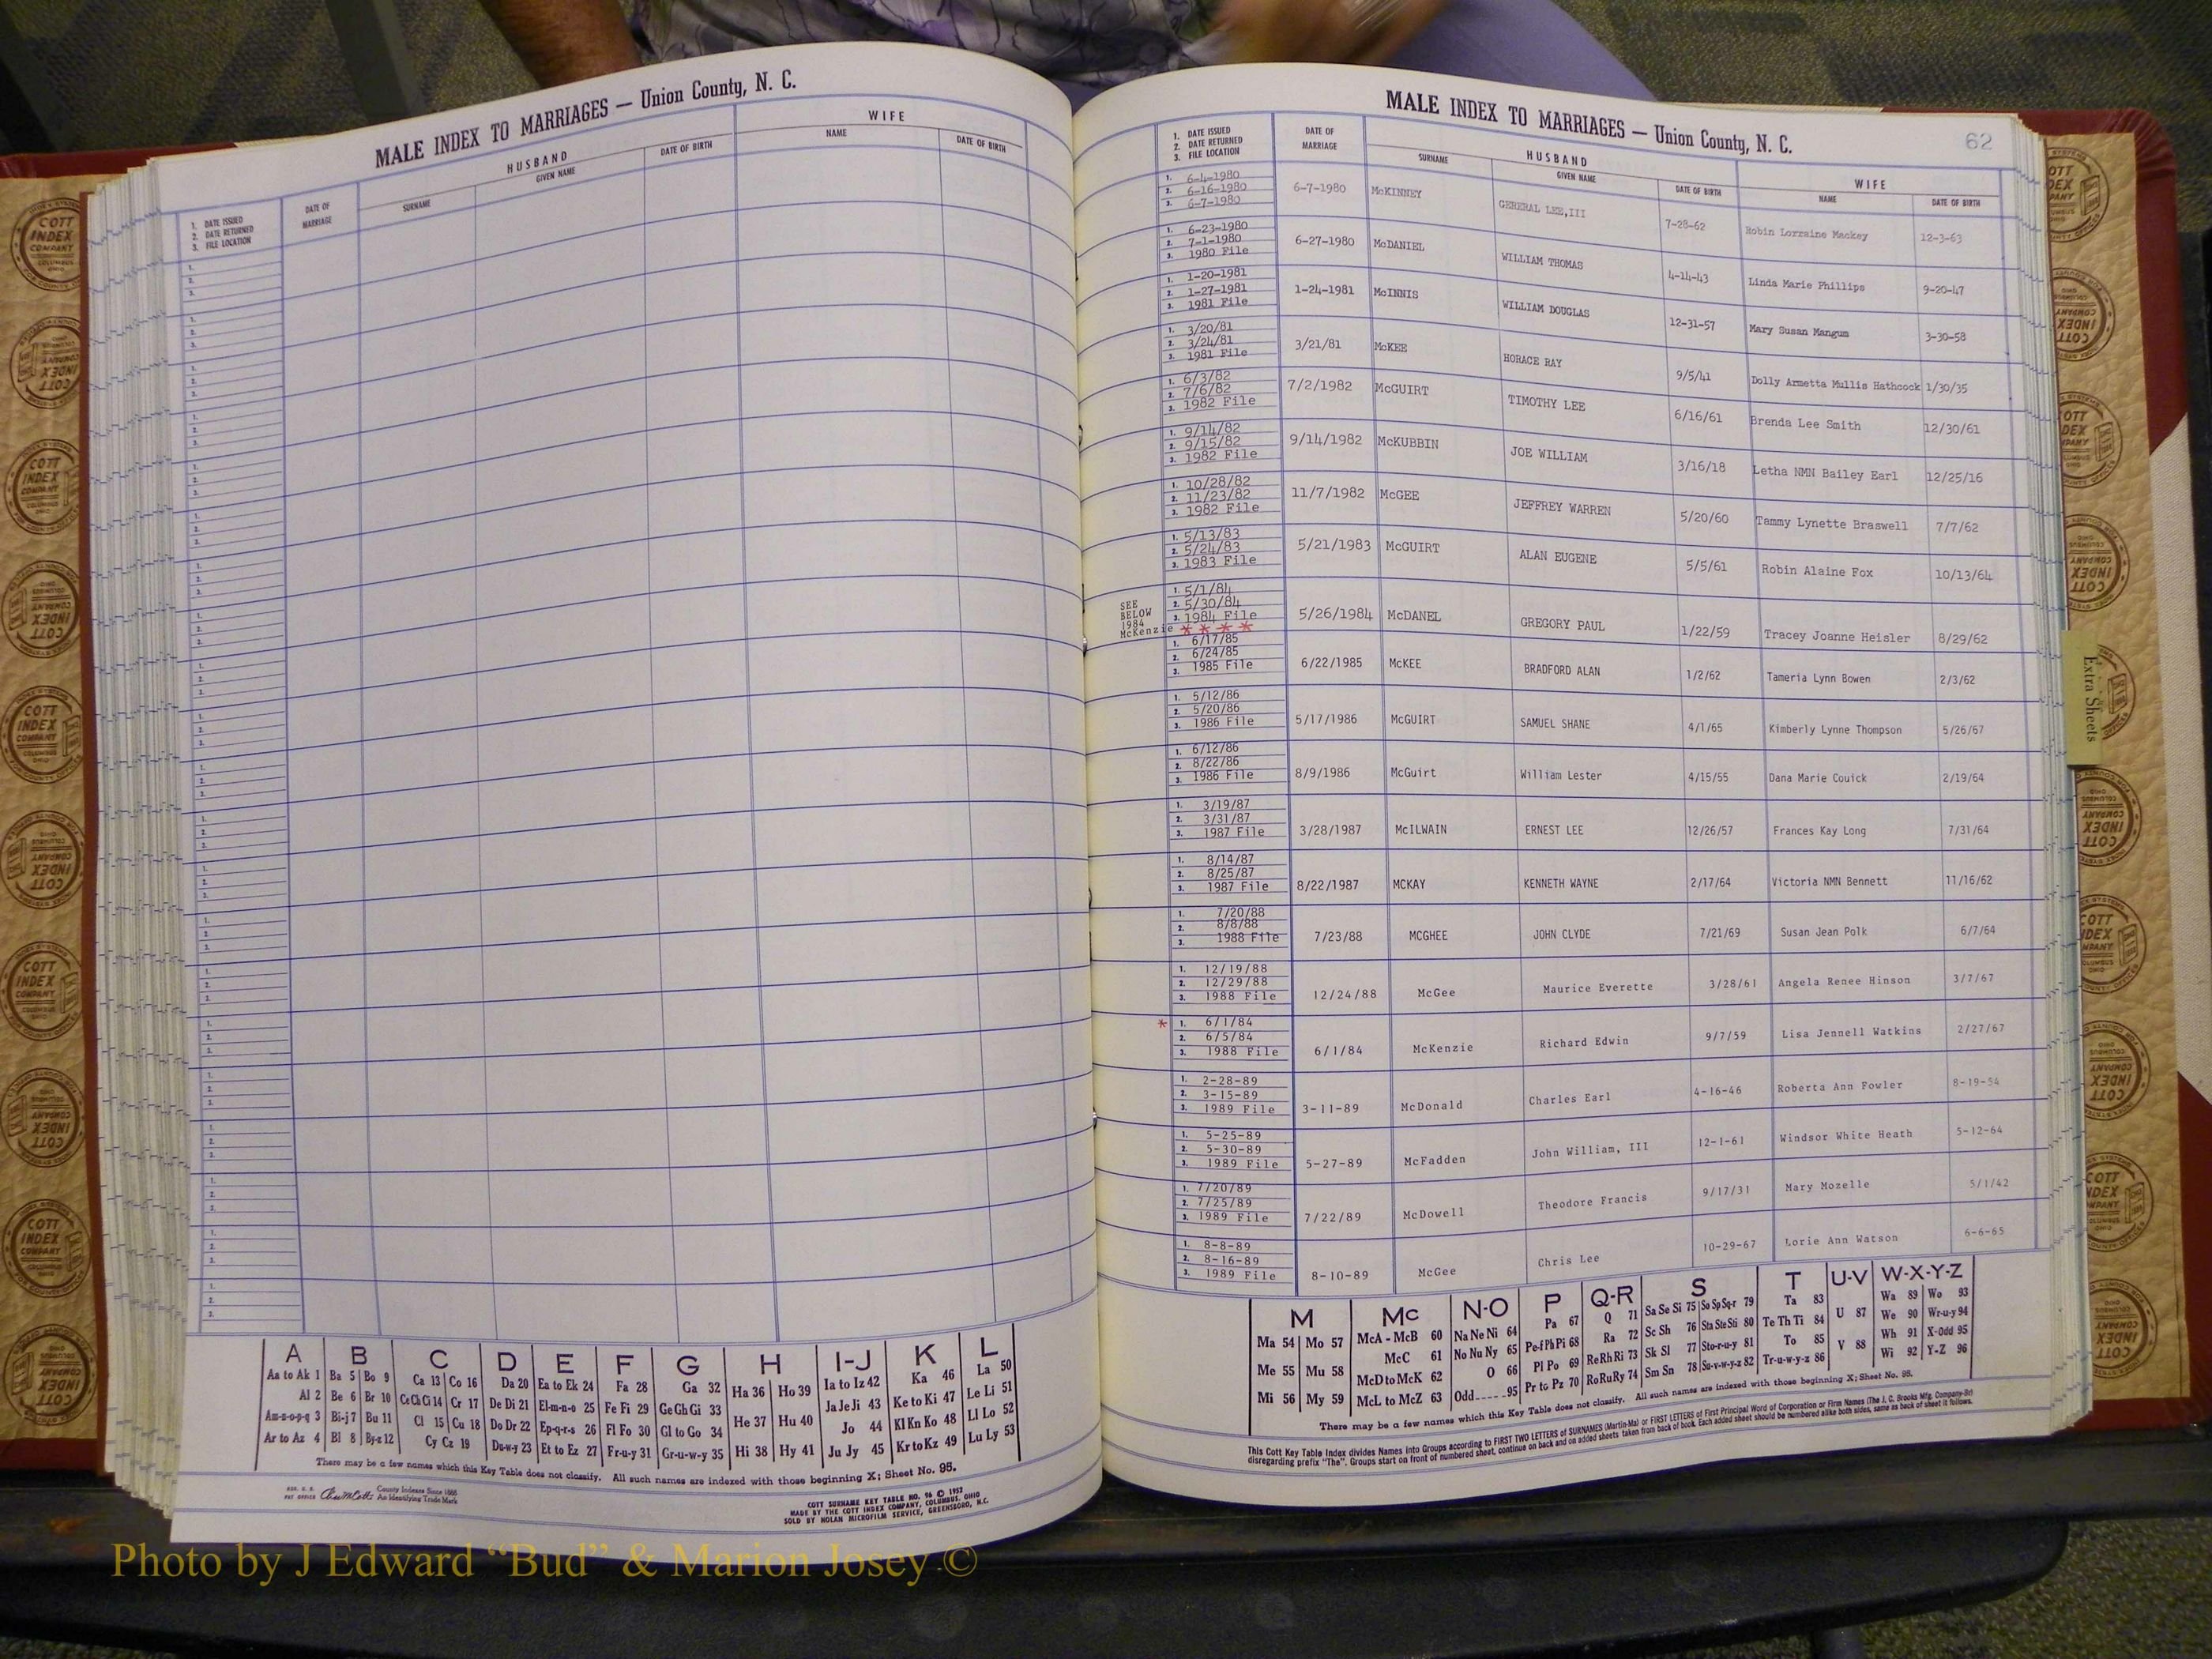 MALE INDEX TO MARRIAGES — Union County, N. C.
1. DATE ISSUED
2. DATE RETURNED
3. FILE LOCATION
DATE OF MARRIAGE
HUSBAND
SURNAME GIVEN NAME DATE OF BIRTH
WIFE
NAME DATE OF BIRTH
A B C D E F G H I-J K L
Aa to Ak 1 Ba 5 Bo 9 Ca 13 Co 16 Da 20 Ea to Ek 24 Fa 28 Ga 32 Ha 36 Ho 39 Ia to Iz 42 Ka 46 La 50
Al 2 Be 6 Br 10 Ce Ch Ci 14 Cr 17 De Di 21 El-m-n-o 25 Fe Fi 29 Ge Gh Gi 33 He 37 Hu 40 Ja Je Ji 43 Ke to Ki 47 Le Li 51
Am-n-o-p-q 3 Bi-j 7 Bu 11 Cl 15 Cu 18 Do Dr 22 Ep-q-r-s 26 Fl Fo 30 Gl to Go 34 Hi 38 Hy 41 Jo 44 Kl Kn Ko 48 Ll Lo 52
Ar to Az 4 Bl 8 By-z 12 Cy Cz 19 Du-w-y 23 Et to Ez 27 Fr-u-y 31 Gr-u-w-y 35 Ju Jy 45 Kr to Kz 49 Lu Ly 53
There may be a few names which this Key Table does not classify. All such names are indexed with those beginning X; Sheet No. 95.
County Indexes Since 1888
An Identifying Trade Mark
COTT SURNAME KEY TABLE NO. 96 © 1952
MADE BY THE COTT INDEX COMPANY, COLUMBUS, OHIO
SOLD BY NOLAN MICROFILM SERVICE, GREENSBORO, N.C.
MALE INDEX TO MARRIAGES — Union County, N. C.
62
1. DATE ISSUED
2. DATE RETURNED
3. FILE LOCATION
DATE OF MARRIAGE
HUSBAND
SURNAME GIVEN NAME DATE OF BIRTH
WIFE
NAME DATE OF BIRTH
1. 6-4-1980
2. 6-16-1980
3. 6-7-1980
6-7-1980 McKINNEY GENERAL LEE,III 7-28-62 Robin Lorraine Mackey 12-3-63
1. 6-23-1980
2. 7-1-1980
3. 1980 File
6-27-1980 McDANIEL WILLIAM THOMAS 4-14-43 Linda Marie Phillips 9-20-47
1. 1-20-1981
2. 1-27-1981
3. 1981 File
1-24-1981 McINNIS WILLIAM DOUGLAS 12-31-57 Mary Susan Mangum 3-30-58
1. 3/20/81
2. 3/24/81
3. 1981 File
3/21/81 McKEE HORACE RAY 9/5/41 Dolly Armetta Mullis Hathcock 1/30/35
1. 6/3/82
2. 7/6/82
3. 1982 File
7/2/1982 McGUIRT TIMOTHY LEE 6/16/61 Brenda Lee Smith 12/30/61
1. 9/14/82
2. 9/15/82
3. 1982 File
9/14/1982 McKUBBIN JOE WILLIAM 3/16/18 Letha NMN Bailey Earl 12/25/16
1. 10/28/82
2. 11/23/82
3. 1982 File
11/7/1982 McGEE JEFFREY WARREN 5/20/60 Tammy Lynette Braswell 7/7/62
1. 5/13/83
2. 5/24/83
3. 1983 File
5/21/1983 McGUIRT ALAN EUGENE 5/5/61 Robin Alaine Fox 10/13/64
SEE
BELOW
1984
McKenzie ****
1. 5/1/84
2. 5/30/84
3. 1984 File
5/26/1984 McDANEL GREGORY PAUL 1/22/59 Tracey Joanne Heisler 8/29/62
1. 6/17/85
2. 6/24/85
3. 1985 File
6/22/1985 McKEE BRADFORD ALAN 1/2/62 Tameria Lynn Bowen 2/3/62
1. 5/12/86
2. 5/20/86
3. 1986 File
5/17/1986 McGUIRT SAMUEL SHANE 4/1/65 Kimberly Lynne Thompson 5/26/67
1. 6/12/86
2. 8/22/86
3. 1986 File
8/9/1986 McGuirt William Lester 4/15/55 Dana Marie Couick 2/19/64
1. 3/19/87
2. 3/31/87
3. 1987 File
3/28/1987 McILWAIN ERNEST LEE 12/26/57 Frances Kay Long 7/31/64
1. 8/14/87
2. 8/25/87
3. 1987 File
8/22/1987 MCKAY KENNETH WAYNE 2/17/64 Victoria NMN Bennett 11/16/62
1. 7/20/88
2. 8/8/88
3. 1988 File
7/23/88 MCGHEE JOHN CLYDE 7/21/69 Susan Jean Polk 6/7/64
1. 12/19/88
2. 12/29/88
3. 1988 File
12/24/88 McGee Maurice Everette 3/28/61 Angela Renee Hinson 3/7/67
* 1. 6/1/84
2. 6/5/84
3. 1988 File
6/1/84 McKenzie Richard Edwin 9/7/59 Lisa Jennell Watkins 2/27/67
1. 2-28-89
2. 3-15-89
3. 1989 File
3-11-89 McDonald Charles Earl 4-16-46 Roberta Ann Fowler 8-19-54
1. 5-25-89
2. 5-30-89
3. 1989 File
5-27-89 McFadden John William, III 12-1-61 Windsor White Heath 5-12-64
1. 7/20/89
2. 7/25/89
3. 1989 File
7/22/89 McDowell Theodore Francis 9/17/31 Mary Mozelle 5/1/42
1. 8-8-89
2. 8-16-89
3. 1989 File
8-10-89 McGee Chris Lee 10-29-67 Lorie Ann Watson 6-6-65
M Mc N-O P Q-R S T U-V W-X-Y-Z
Ma 54 Mo 57 McA - McB 60 Na Ne Ni 64 Pa 67 Q 71 Sa Se Si 75 So Sp Sq-r 79 Ta 83 U 87 Wa 89 Wo 93
Me 55 Mu 58 McC 61 No Nu Ny 65 Pe-f Ph Pi 68 Ra 72 Sc Sh 76 Sta Ste Sti 80 Te Th Ti 84 V 88 We 90 Wr-u-y 94
Mi 56 My 59 McD to McK 62 O 66 Pl Po 69 Re Rh Ri 73 Sk Sl 77 Sto-r-u-y 81 To 85 Wh 91 X-Odd 95
McL to McZ 63 Odd 95 Pr to Pz 70 Ro Ru Ry 74 Sm Sn 78 Su-v-w-y-z 82 Tr-u-w-y-z 86 Wi 92 Y-Z 96
There may be a few names which this Key Table does not classify. All such names are indexed with those beginning X; Sheet No. 95.
This Cott Key Table Index divides Names into Groups according to FIRST TWO LETTERS of SURNAMES (Martin-Ma) or FIRST LETTERS of First Principal Word of Corporation or Firm Names (The J. C. Brooks Mfg. Company-Br)
disregarding prefix "The". Groups start on front of numbered sheet, continue on back and on added sheets taken from back of book. Each added sheet should be numbered alike both sides, same as back of sheet it follows.
Extra Sheets
COTT
INDEX
COMPANY
COLUMBUS
OHIO
Photo by J Edward “Bud” & Marion Josey ©